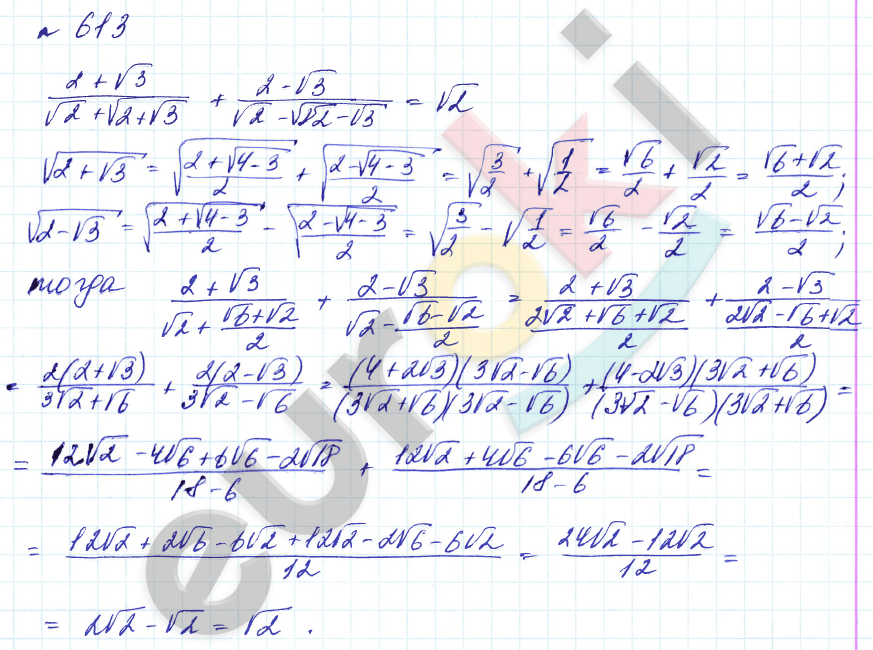 № 613
(2 + √3)/(√2 + √(2 + √3)) + (2 - √3)/(√2 - √(2 - √3)) = √2
√(2 + √3) = √((2 + √(4 - 3))/2) + √((2 - √(4 - 3))/2) = √(3/2) + √(1/2) = √6/2 + √2/2 = (√6 + √2)/2;
√(2 - √3) = √((2 + √(4 - 3))/2) - √((2 - √(4 - 3))/2) = √(3/2) - √(1/2) = √6/2 - √2/2 = (√6 - √2)/2;
тогда (2 + √3)/(√2 + (√6 + √2)/2) + (2 - √3)/(√2 - (√6 - √2)/2) = (2 + √3)/((2√2 + √6 + √2)/2) + (2 - √3)/((2√2 - √6 + √2)/2)
= 2(2 + √3)/(3√2 + √6) + 2(2 - √3)/(3√2 - √6) = (4 + 2√3)(3√2 - √6)/((3√2 + √6)(3√2 - √6)) + (4 - 2√3)(3√2 + √6)/((3√2 - √6)(3√2 + √6)) =
= (12√2 - 4√6 + 6√6 - 2√18)/(18 - 6) + (12√2 + 4√6 - 6√6 - 2√18)/(18 - 6) =
= (12√2 + 2√6 - 6√2 + 12√2 - 2√6 - 6√2)/12 = (24√2 - 12√2)/12 =
= 2√2 - √2 = √2.
euroki